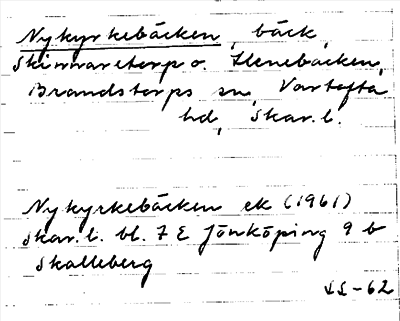 Nykyrkebäcken, bäck,
Skinnaretorp o. Stenebäcken,
Brandstorps sn, Vartofta
hd, Skar. l.
Nykyrkebäcken ek (1961)
Skar. l. bl. 7 E Jönköping 9 b
Skalleberg
SS-62